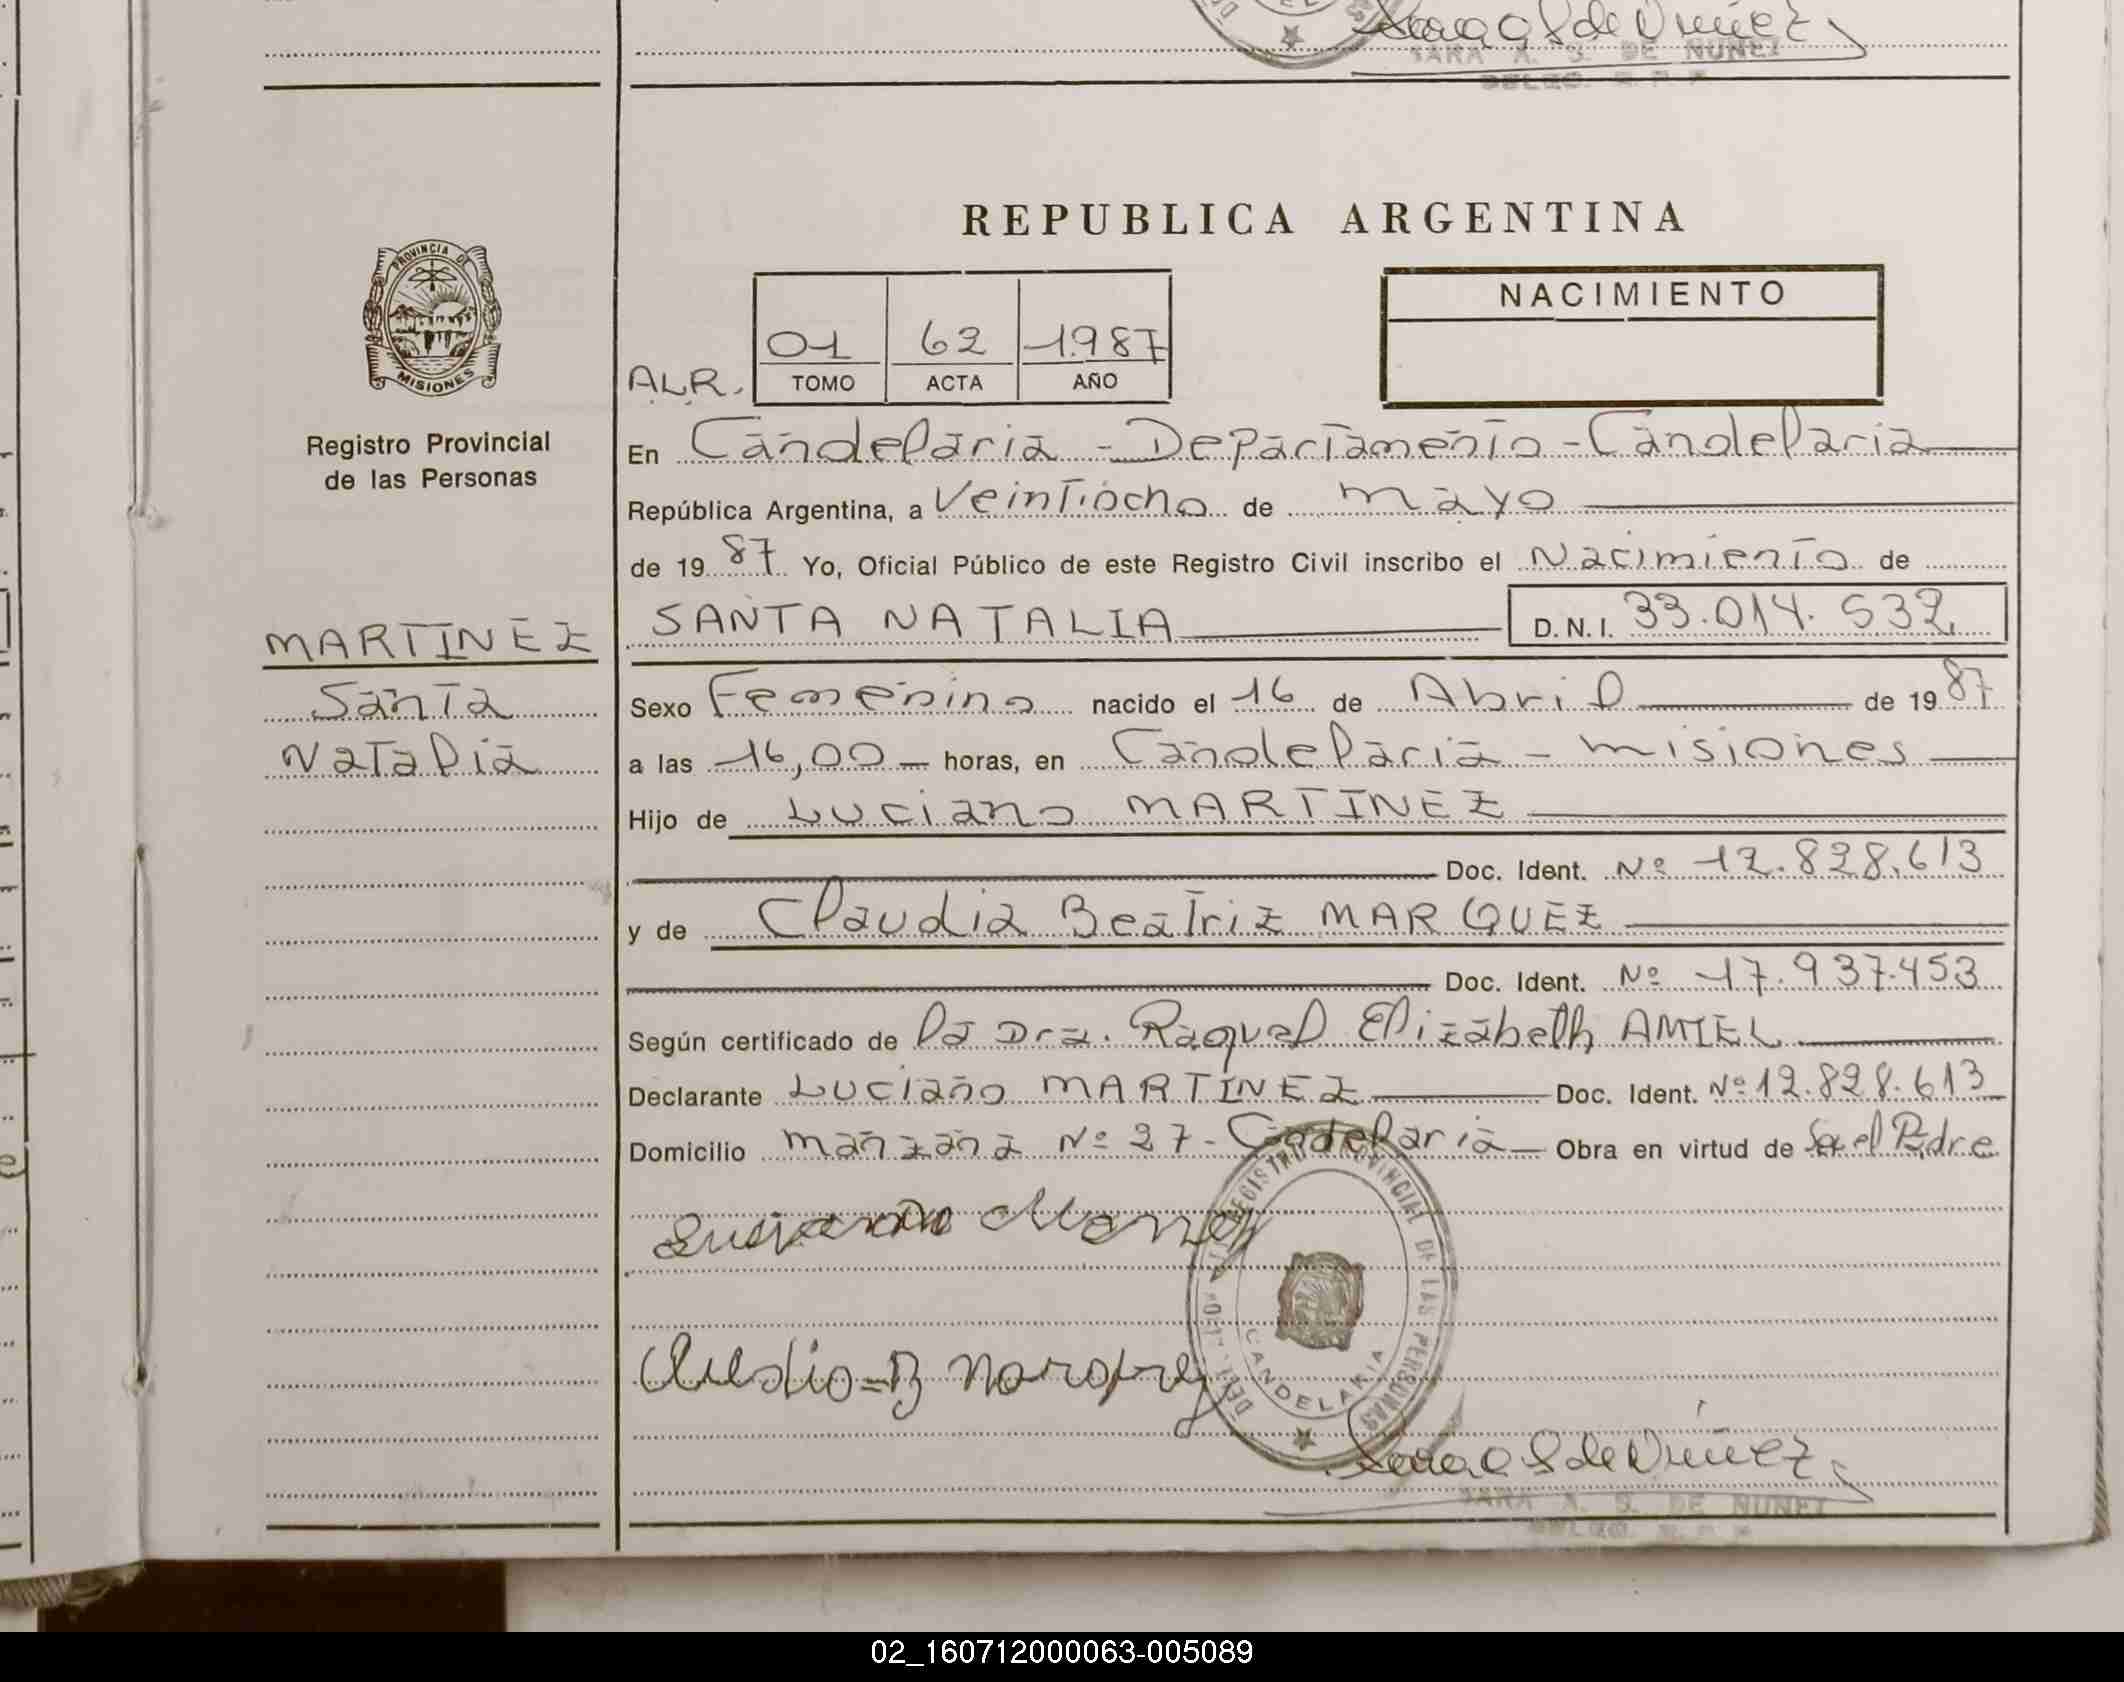 Sara A S de Nuñez
SARA A. S. DE NUÑEZ
DELEG. R. P. P.
PROVINCIA DE
MISIONES
Registro Provincial
de las Personas
MARTINEZ
Santa
Natalia
REPUBLICA ARGENTINA
NACIMIENTO
01 62 1.987
ALR. TOMO ACTA AÑO
En Candelaria - Departamento - Candelaria
República Argentina, a Veintiocho de mayo
de 19 87 Yo, Oficial Público de este Registro Civil inscribo el Nacimiento de
SANTA NATALIA D.N.I. 33.014.532
Sexo Femenino nacido el 16 de Abril de 19 87
a las 16,00 horas, en Candelaria - misiones
Hijo de Luciano MARTINEZ
Doc. Ident. Nº 12.828.613
y de Claudia Beatriz MARQUEZ
Doc. Ident. Nº 17.937.453
Según certificado de la Dra. Raquel Elizabeth AMIEL
Declarante Luciano MARTINEZ Doc. Ident. Nº 12.828.613
Domicilio manzana Nº 27 - Candelaria Obra en virtud de Ser el Padre
REGISTRO PROVINCIAL DE LAS PERSONAS
CANDELARIA
Sara A S de Nuñez
SARA A. S. DE NUÑEZ
DELEG. R. P. P.
02_160712000063-005089